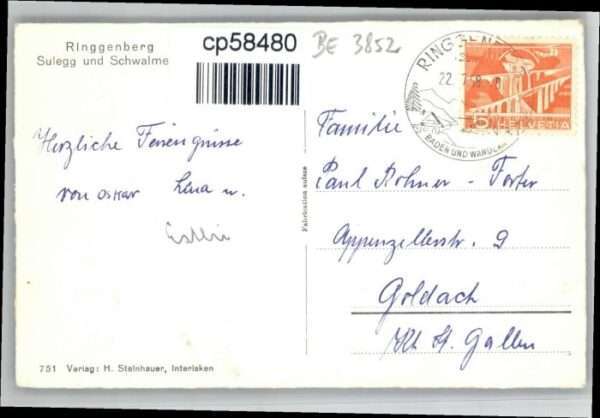 Ringgenberg
Sulegg und Schwalme
cp58480
BE 3852
RINGGENB
22. 7
BADEN UND WANDERN
5
HELVETIA
Herzliche Feriengrüsse
von Oskar Lena u.
Fabrication suisse
Familie
Paul Rohner - Forter
Appenzellerstr. 9
Goldach
Kt. St. Gallen
751 Verlag: H. Steinhauer, Interlaken